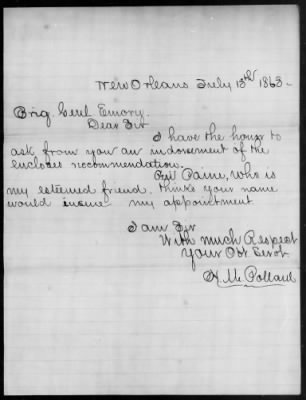 New Orleans July 13th 1863.
Brig. Genl Emory.
Dear Sir
I have the honor to
ask from you an indorsement of the
enclosed recommendation.
Paine, who is
my esteemed friend. thinks your name
would insure my appointment.
I am Sir
With much Respect
Your Obt Servt
H. M. Pollard